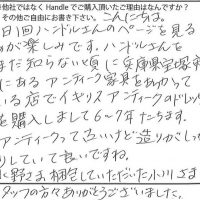 ※他社ではなく Handle でご購入頂いたご理由はなんですか?
その他ご自由にお書き下さい。 こんにちは。
日1回ハンドルさんのページを見る
が楽しみです。ハンドルさんを
まだ知らない頃に兵庫県宝塚
にあるアンティーク家具をあつかって
いる店でイギリスアンティークのドレッ
を購入しまして6〜7年たちます。
アンティークって古いけど造りがしっか
していて良いですね。
野さま、梱包していただいた小川さま
タッフの方々ありがとうございました。